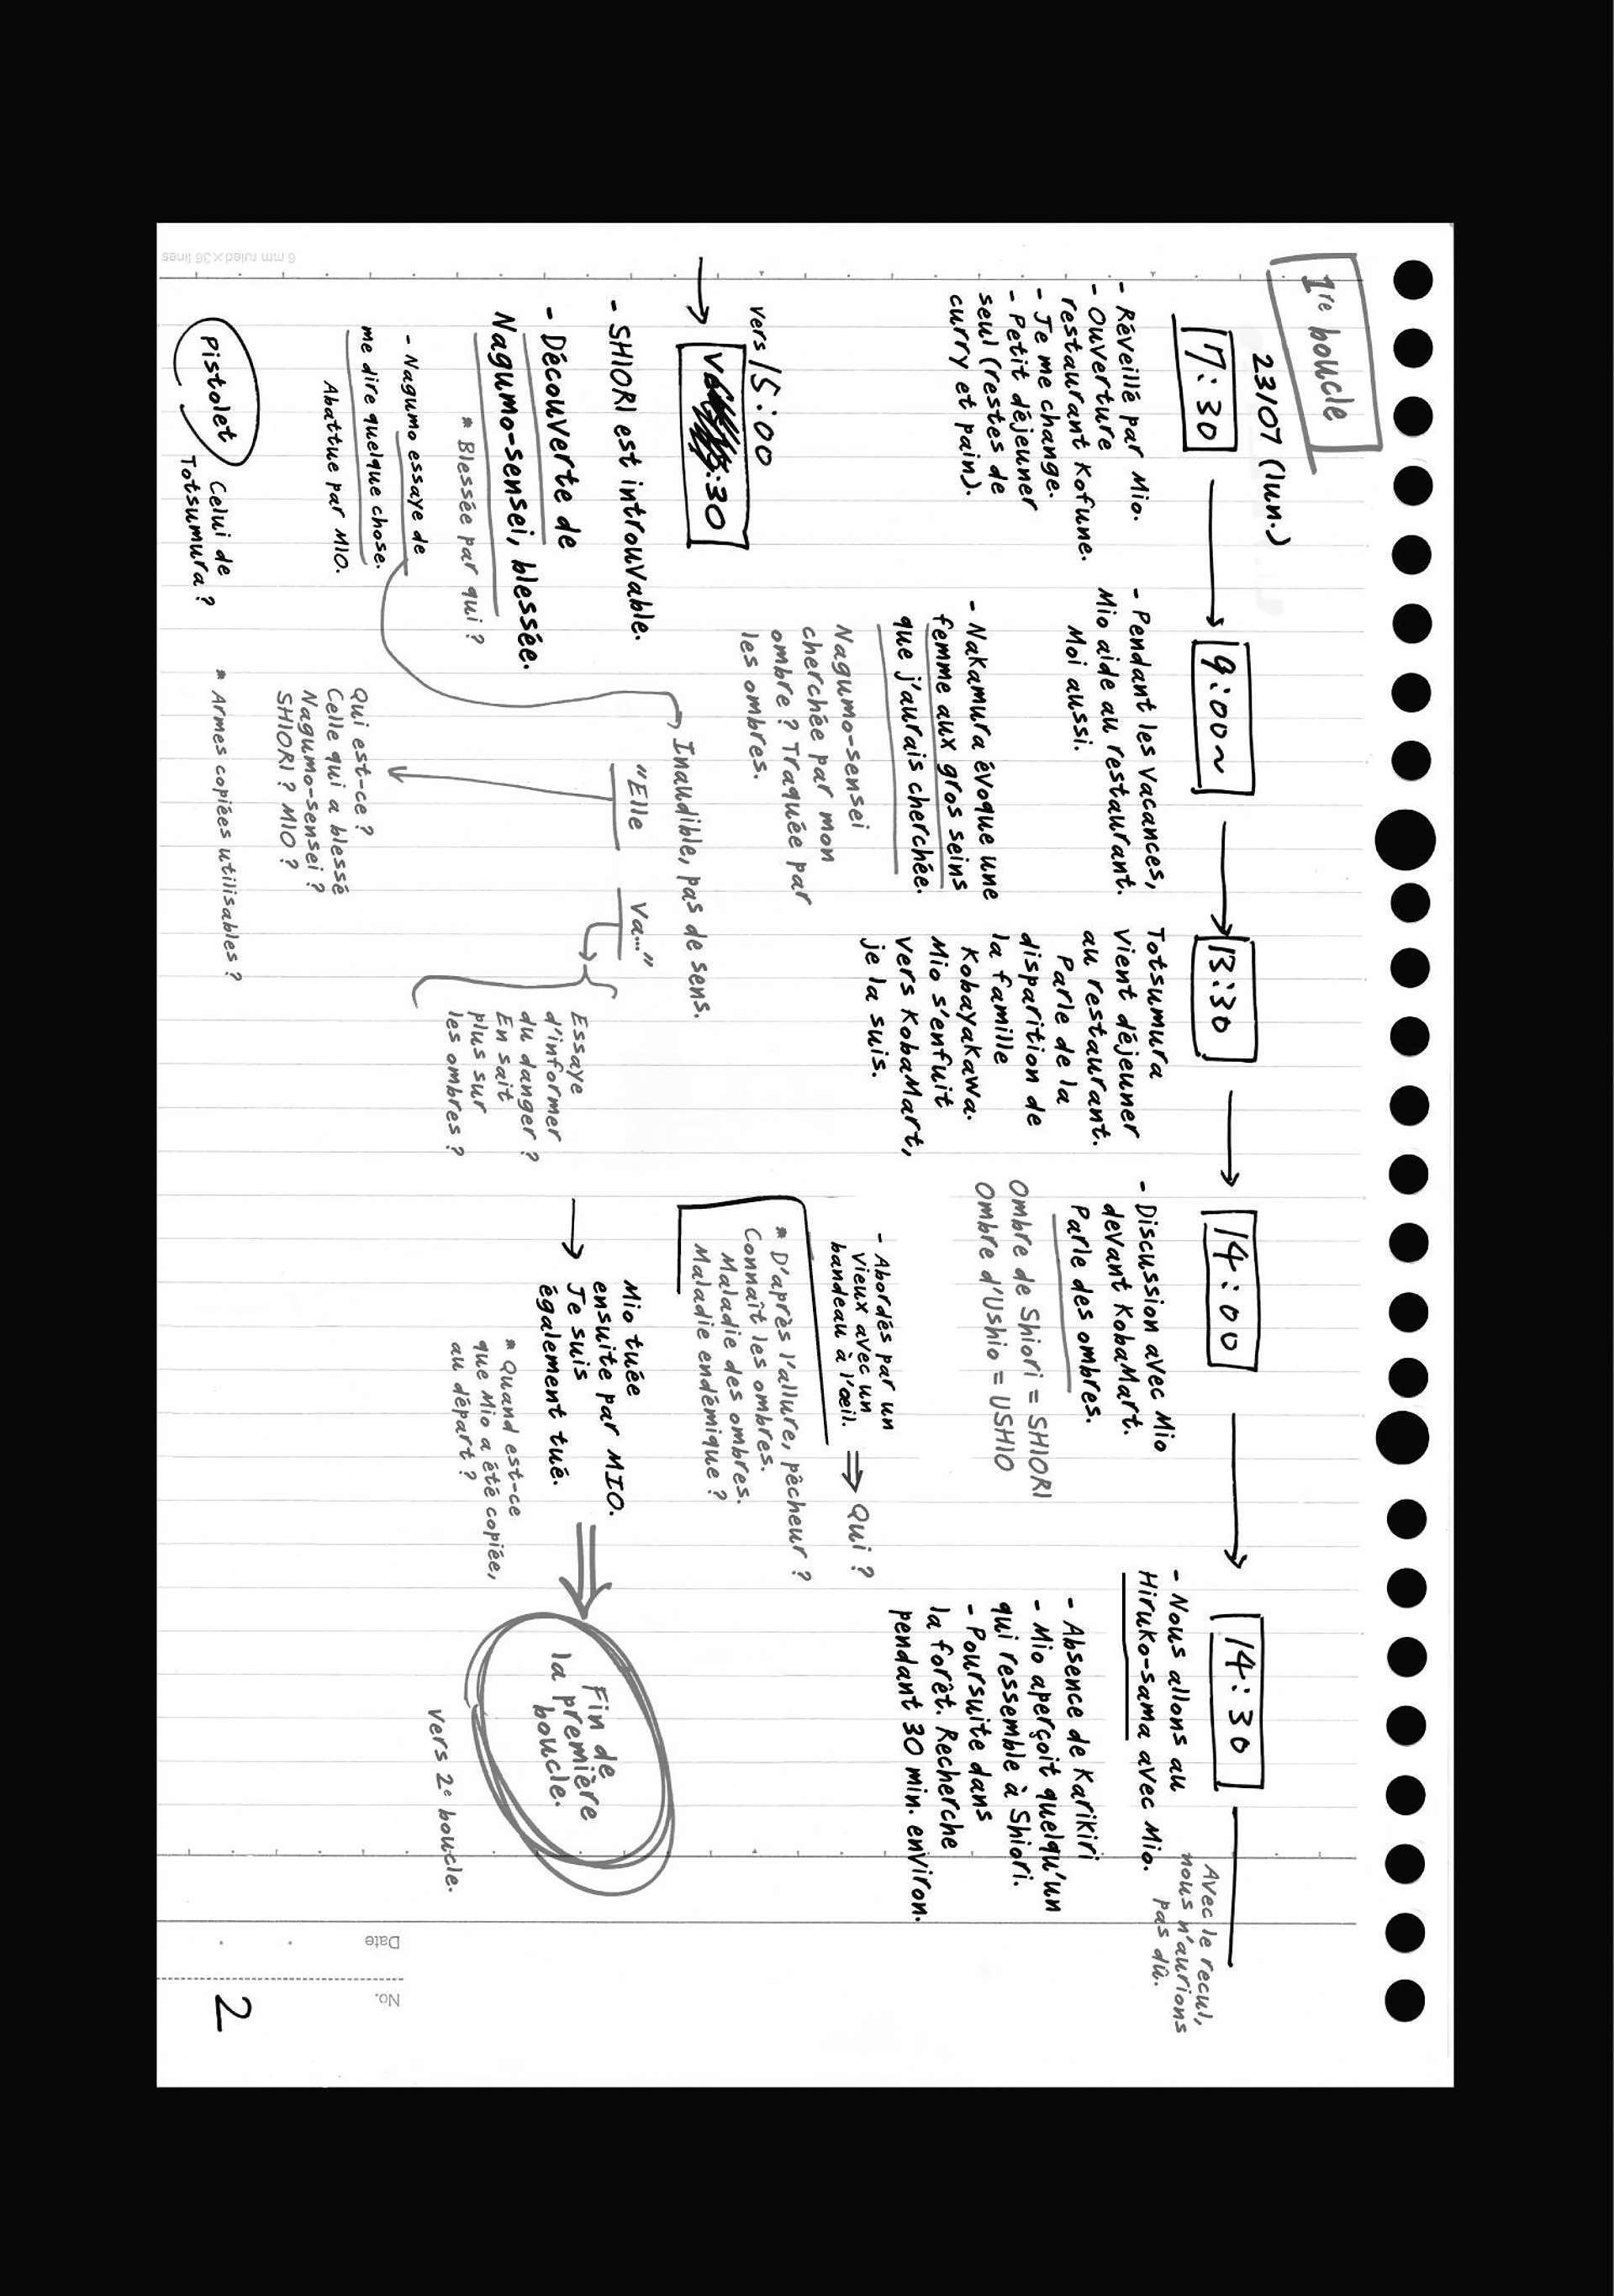 1re boucle
23/07 (lun.)
7:30
- Réveillé par Mio.
- Ouverture
restaurant Kofune.
- Je me change.
- Petit déjeuner
seul (restes de
curry et pain).
9:00~
- Pendant les vacances,
Mio aide au restaurant.
Moi aussi.
- Nakamura évoque une
femme aux gros seins
que j'aurais cherchée.
Nagumo-sensei
cherchée par mon
ombre ? Traquée par
les ombres.
13:30
Totsumura
vient déjeuner
au restaurant.
Parle de la
disparition de
la famille
Kobayakawa.
Mio s'enfuit
vers KobaMart,
je la suis.
14:00
- Discussion avec Mio
devant KobaMart.
Parle des ombres.
Ombre de Shiori = SHIORI
Ombre d'Ushio = USHIO
- Abordés par un
vieux avec un
bandeau à l'œil.
⇒ Qui ?
* D'après l'allure, pêcheur ?
Connaît les ombres.
Maladie des ombres.
Maladie endémique ?
14:30
- Nous allons au
Hiruko-sama avec Mio.
Avec le recul,
nous n'aurions
pas dû.
- Absence de Karikiri
- Mio aperçoit quelqu'un
qui ressemble à Shiori.
- Poursuite dans
la forêt. Recherche
pendant 30 min. environ.
vers 15:00
:30
- SHIORI est introuvable.
- Découverte de
Nagumo-sensei, blessée.
* Blessée par qui ?
- Nagumo essaye de
me dire quelque chose.
Abattue par MIO.
Pistolet
Celui de
Totsumura ?
* Armes copiées utilisables ?
Inaudible, pas de sens.
"Elle Va..."
Qui est-ce ?
Celle qui a blessé
Nagumo-sensei ?
SHIORI ? MIO ?
Essaye
d'informer
du danger ?
En sait
plus sur
les ombres ?
Mio tuée
ensuite par MIO.
Je suis
également tué.
* Quand est-ce
que Mio a été copiée,
au départ ?
Fin de
la première
boucle.
Vers 2e boucle.
6 mm ruled×36 lines
Date
No.
2